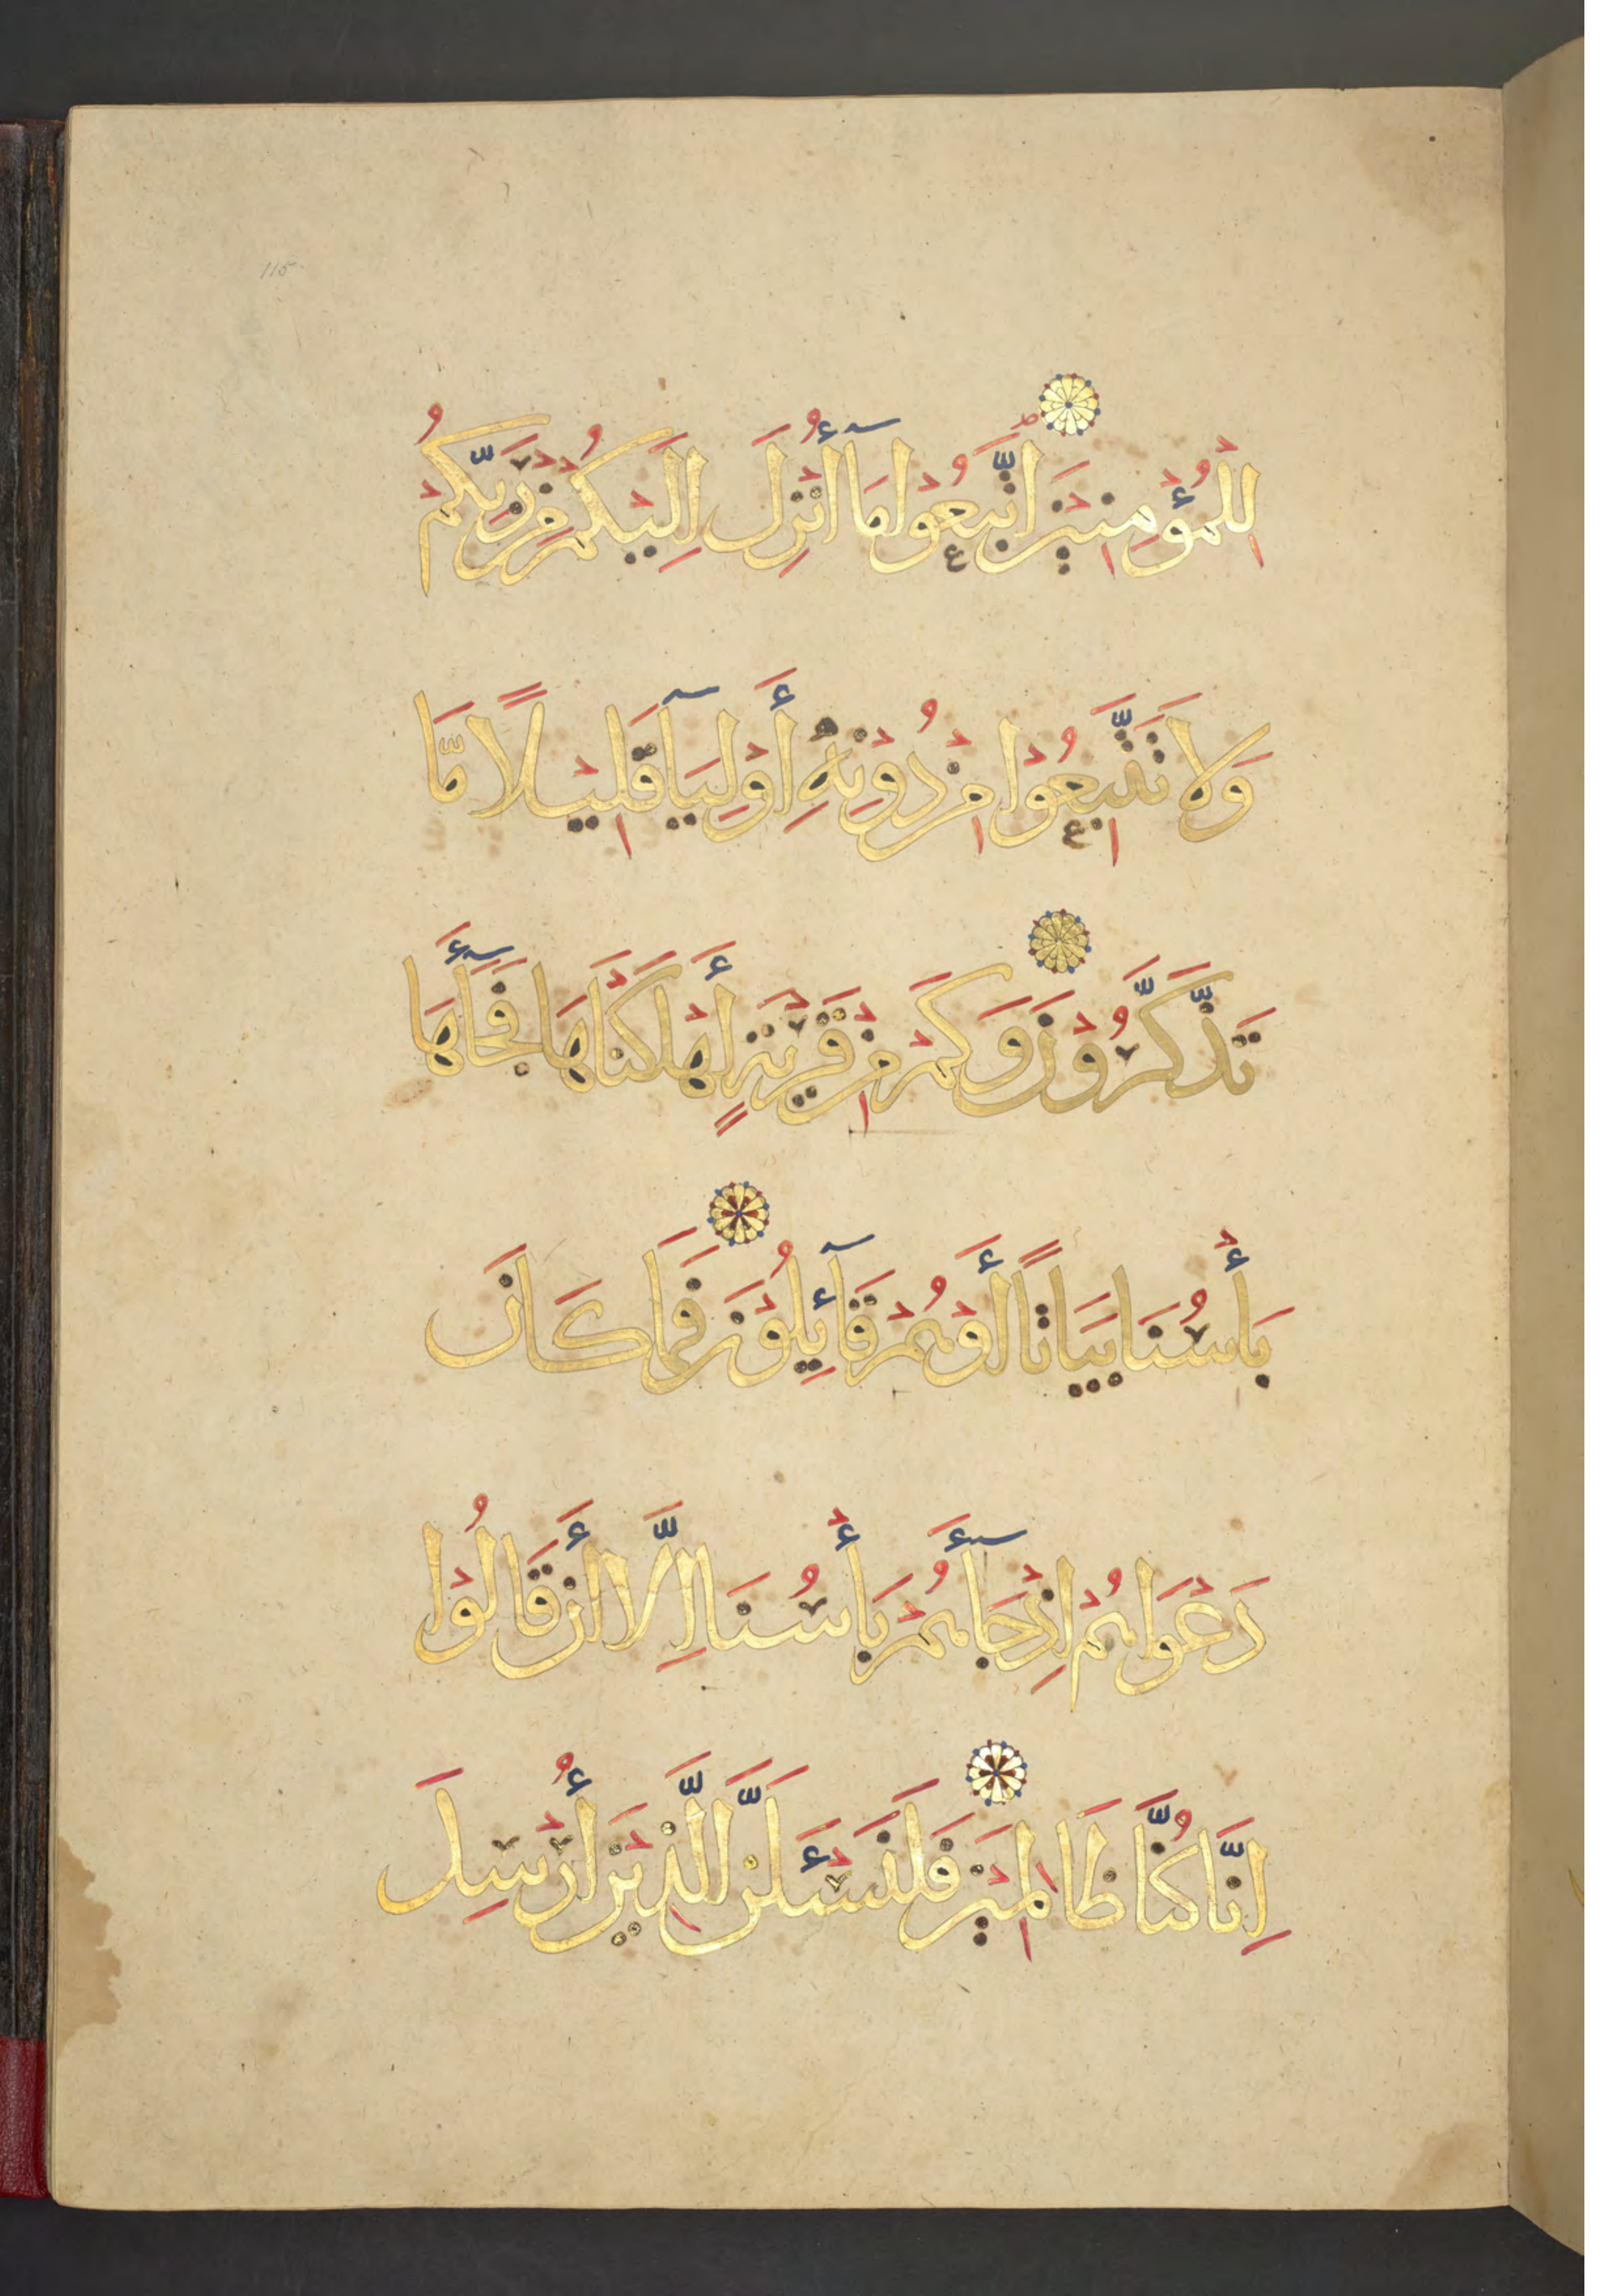 115
لِلْمُؤْمِنِيْنَ اتَّبِعُوْا مَآ أُنْزِلَ إِلَيْكُمْ مِنْ رَبِّكُمْ
وَلَا تَتَّبِعُوْا مِنْ دُوْنِهِ أَوْلِيَآ قَلِيْلًا مَّا
تَذَّكَّرُوْنَ وَكَمْ مِنْ قَرْيَةٍ أَهْلَكْنَاهَا فَجَآءَهَا
بَأْسُنَا بَيَاتًا أَوْهُمْ قَآئِلُوْنَ فَمَا كَانَ
دَعْوَاهُمْ إِذْ جَآءَهُمْ بَأْسُنَا إِلَّا أَنْ قَالُوْا
إِنَّا كُنَّا ظَالِمِيْنَ فَلَنَسْئَلَنَّ الَّذِيْنَ أُرْسِلَ